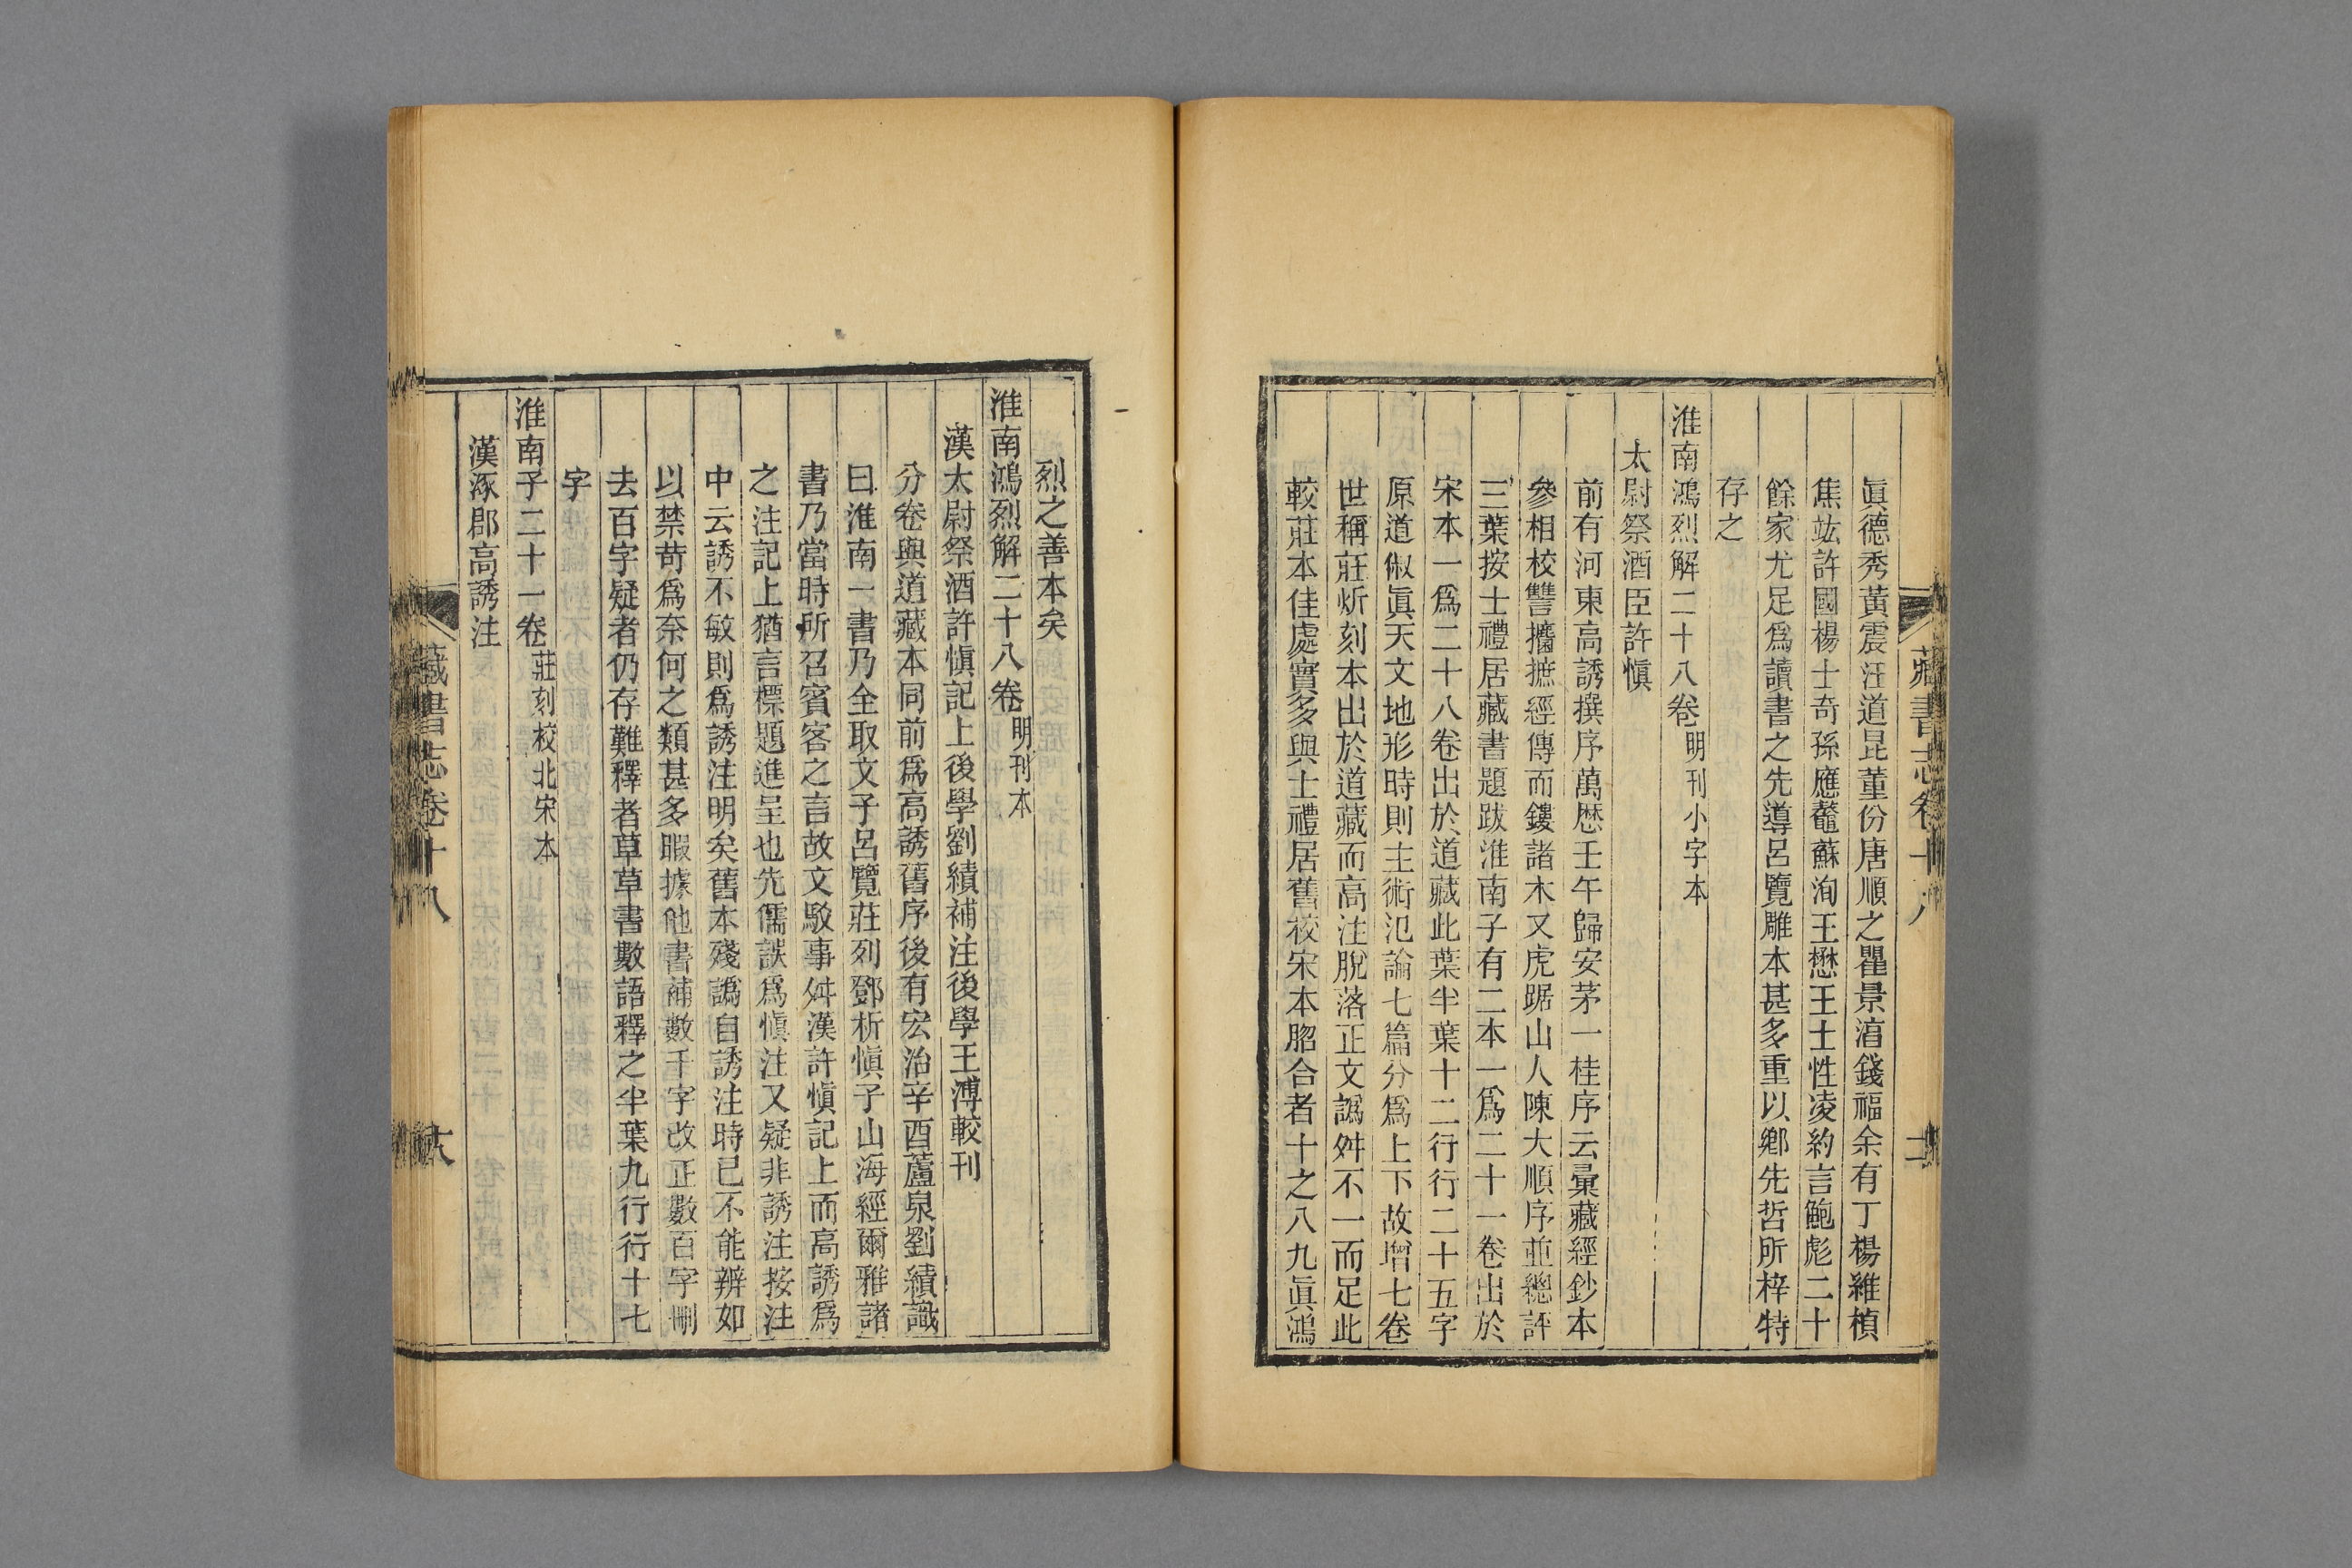 眞德秀黃震汪道昆董份唐順之瞿景淳錢福余有丁楊維楨
焦竑許國楊士奇孫應鼇蘇洵王懋王士性凌約言鮑彪二十
餘家尤足爲讀書之先導呂覽雕本甚多重以鄉先哲所梓特
存之
淮南鴻烈解二十八卷明刊小字本
太尉祭酒臣許愼
前有河東高誘撰序萬歷壬午歸安茅一桂序云彙藏經鈔本
參相校讐攟摭經傳而鏤諸木又虎踞山人陳大順序並總評
三葉按士禮居藏書題跋淮南子有二本一爲二十一卷出於
宋本一爲二十八卷出於道藏此葉半葉十二行行二十五字
原道俶眞天文地形時則主術氾論七篇分爲上下故增七卷
世稱莊炘刻本出於道藏而高注脫落正文譌舛不一而足此
較莊本佳處實多與士禮居舊校宋本脗合者十之八九眞鴻
烈之善本矣
淮南鴻烈解二十八卷明刊本
漢太尉祭酒許愼記上後學劉績補注後學王溥較刊
分卷與道藏本同前爲高誘舊序後有宏治辛酉蘆泉劉績識
曰淮南一書乃全取文子呂覽莊列鄧析愼子山海經爾雅諸
書乃當時所召賓客之言故文駁事舛漢許愼記上而高誘爲
之注記上猶言標題進呈也先儒誤爲愼注又疑非誘注按注
中云誘不敏則爲誘注明矣舊本殘譌自誘注時已不能辨如
以禁苛爲奈何之類甚多暇據他書補數千字改正數百字刪
去百字疑者仍存難釋者草草書數語釋之半葉九行行十七
字
淮南子二十一卷莊刻校北宋本
漢涿郡高誘注
藏書志卷十八